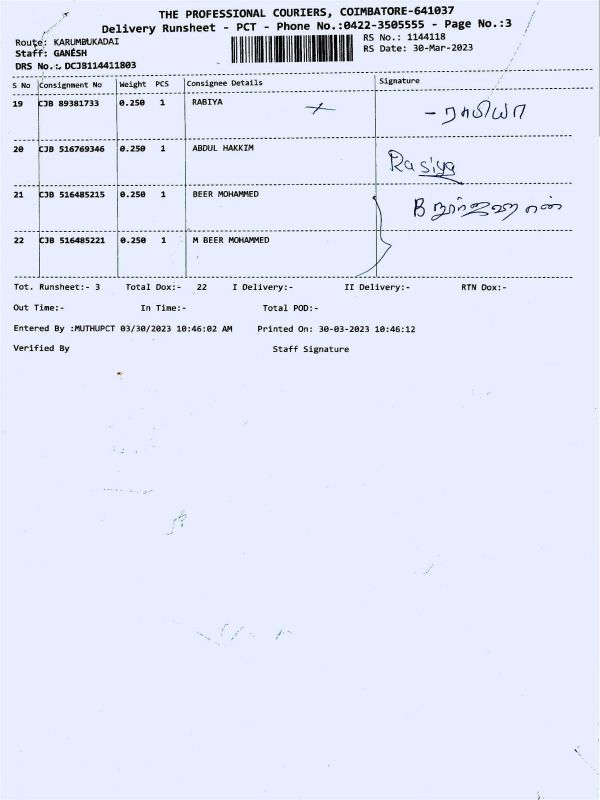 THE PROFESSIONAL COURIERS, COIMBATORE-641037
Delivery Runsheet - PCT - Phone No.:0422-3505555 - Page No.:3
Route: KARUMBUKADAI
RS No.: 1144118
Staff: GANESH
RS Date: 30-Mar-2023
DRS No.: DCJB114411803
S No Consignment No Weight PCS Consignee Details Signature
19 CJB 89381733 0.250 1 RABIYA - ராபியா
20 CJB 516769346 0.250 1 ABDUL HAKKIM Rasiya
21 CJB 516485215 0.250 1 BEER MOHAMMED B
22 CJB 516485221 0.250 1 M BEER MOHAMMED
Tot. Runsheet:- 3 Total Dox:- 22 I Delivery:- II Delivery:- RTN Dox:-
Out Time:- In Time:- Total POD:-
Entered By :MUTHUPCT 03/30/2023 10:46:02 AM Printed On: 30-03-2023 10:46:12
Verified By Staff Signature